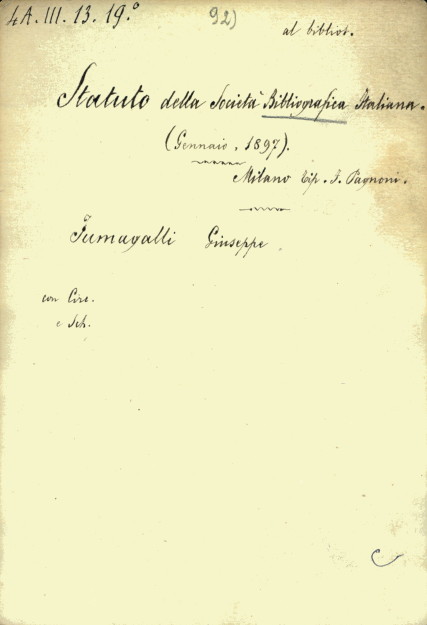 4A. III. 13. 19.° 92)
al bibliot.
Statuto della Società Bibliografica Italiana.
(Gennaio, 1897).
Milano tip. I. Pagnoni.
Fumagalli Giuseppe.
con Circ.
e Sch.